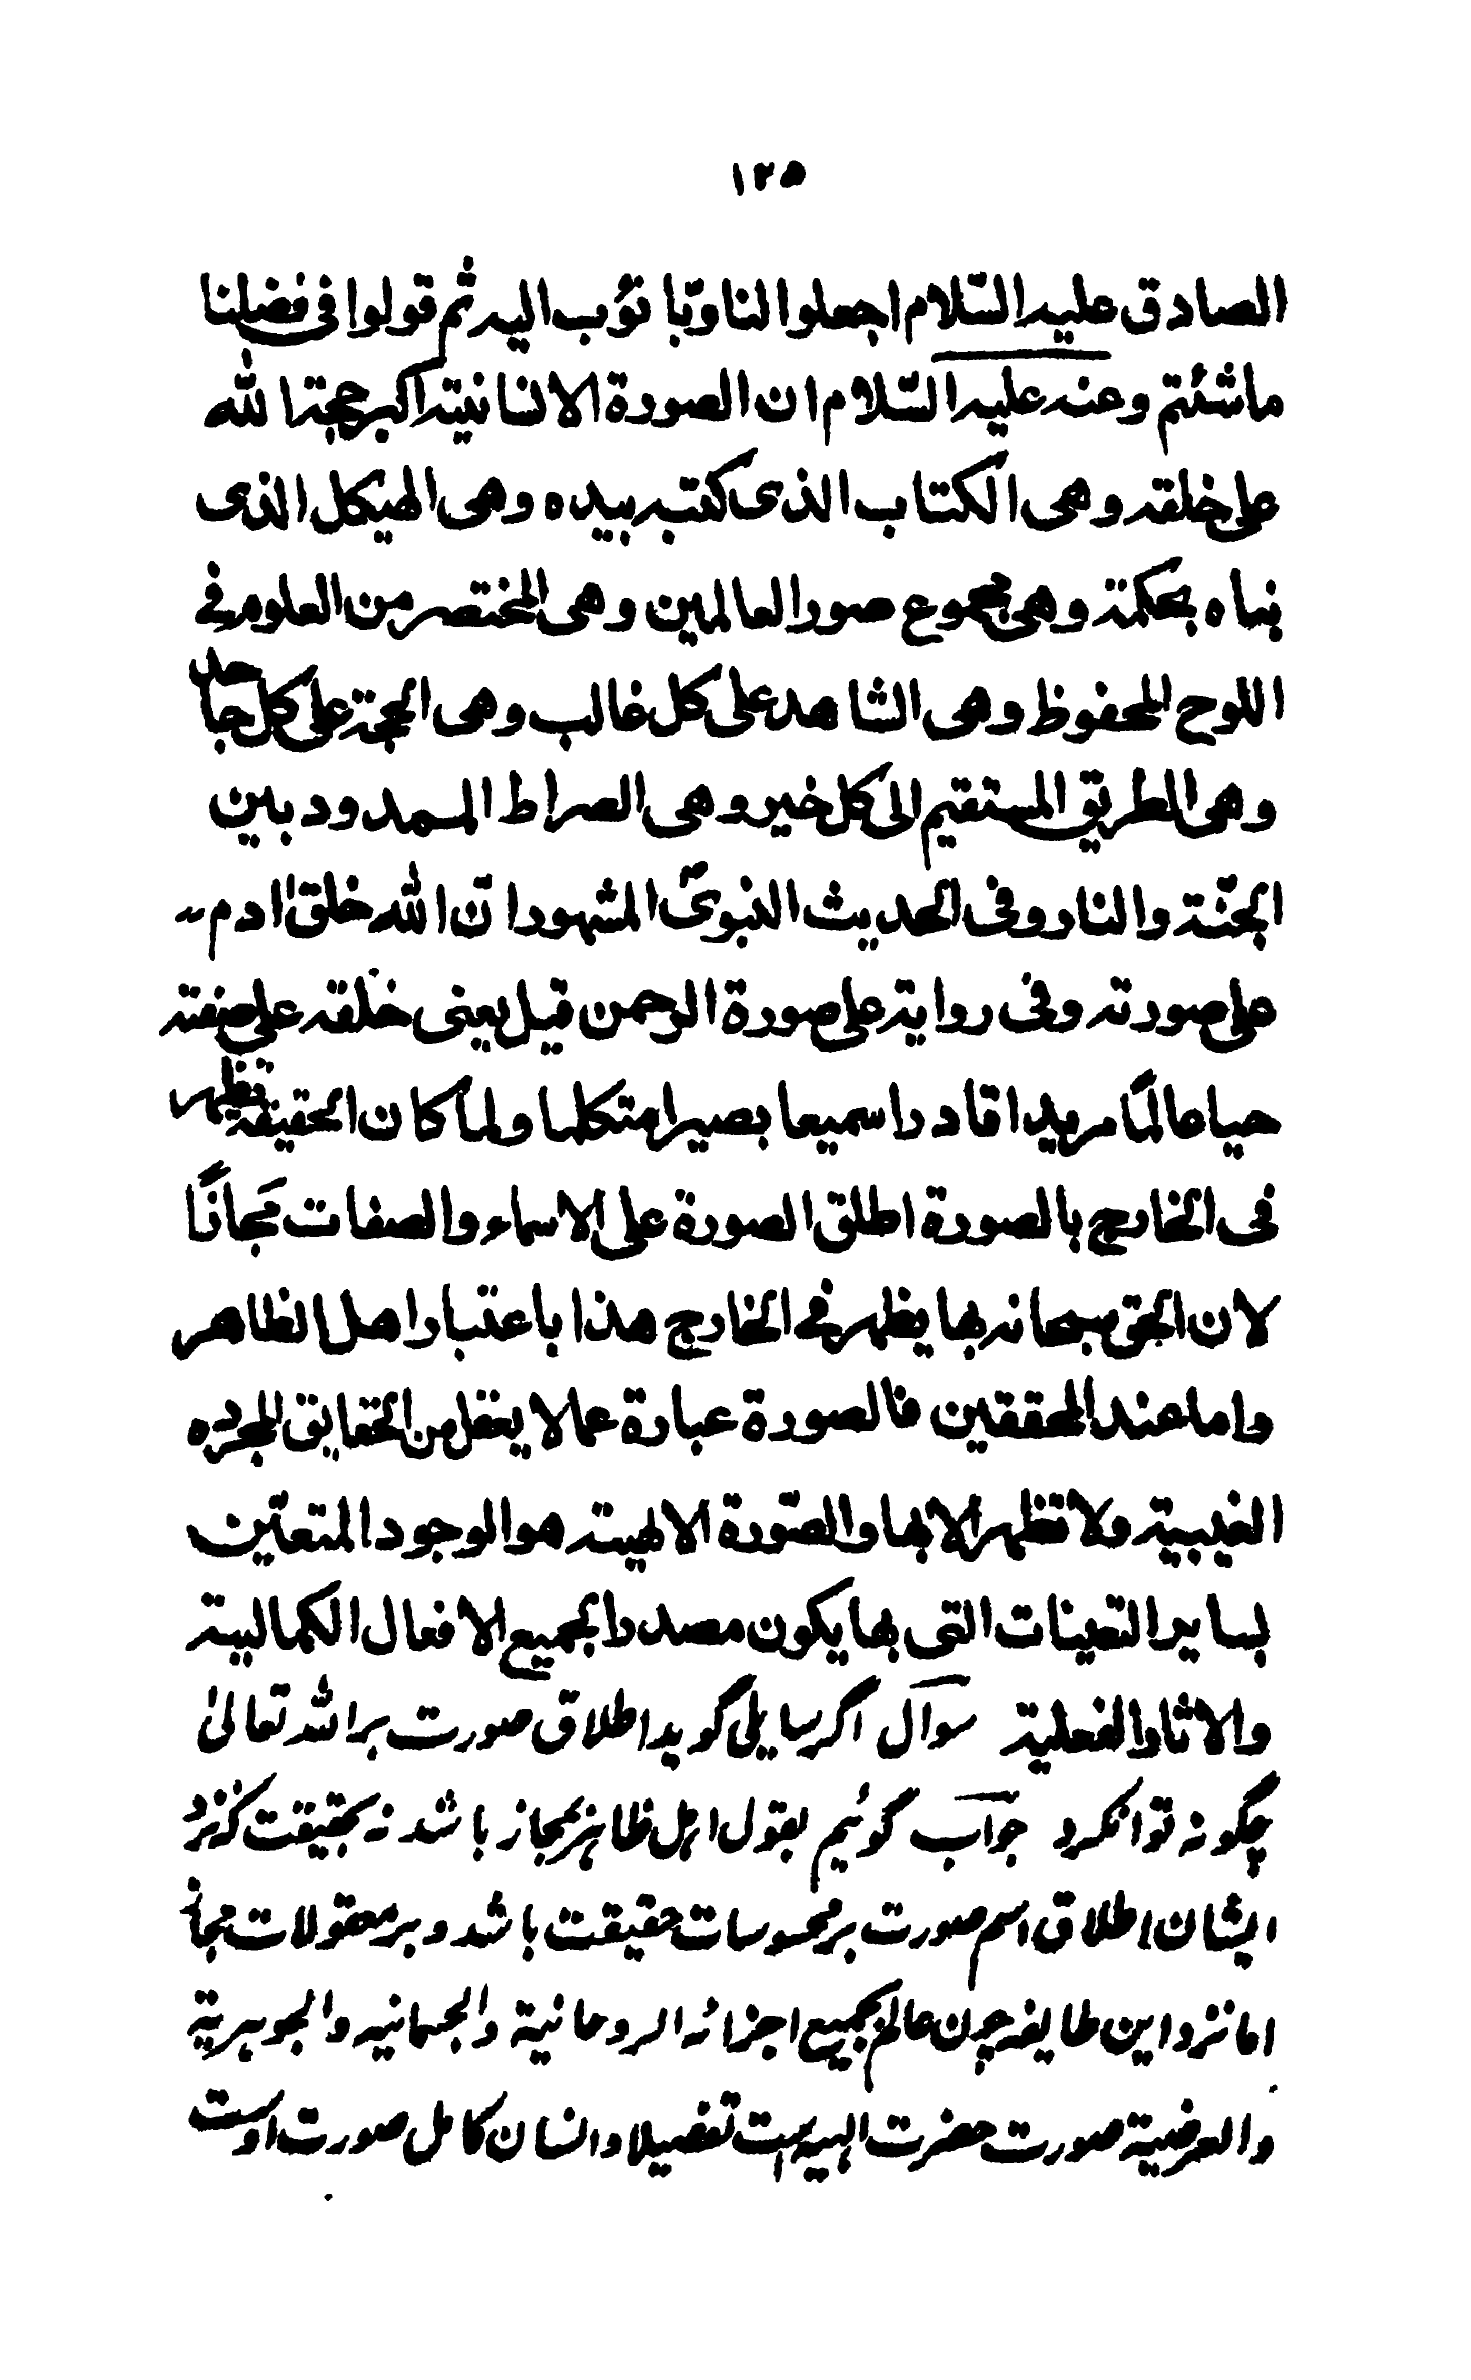 ١٢٥
الصادق عليه السّلام اجعلوا لنا ربّا نؤب اليه ثم قولوا فى فضلنا
ما شئتم وعنه عليه السّلام ان الصورة الانسانيته اكبر حجة الله
على خلقه وهى الكتاب الذى كتبه بيده وهى الهيكل الذى
بناه بحكمته وهى مجموع صور العالمين وهى المختصر من العلوم فى
اللوح المحفوظ وهى الشاهد على كل غائب وهى الحجة على كل جاحد
وهى الطريق المستقيم الى كل خير وهى الصراط الممدود بين
الجنّة والنار وفى الحديث النبوىّ المشهور انّ الله خلق ادم
على صورته وفى رواية على صورة الرحمن قيل يعنى خلقه على صفته
حيا عالمًا مريدا قادرا سميعا بصيرا متكلما ولما كان الحقيقة تظهر
فى الخارج بالصورة اطلق الصورة على الاسماء والصفات مَجازًا
لان الحق سبحانه بها يظهر فى الخارج هذا باعتبار اهل الظاهر
واما عند المحققين فالصورة عبارة عما لا يعقل من الحقايق المجرده
الغيبية ولا تظهر الا بها والصّورة الالهيته هو الوجود المتعيّن
بساير التعينات التى بها يكون مصدرا لجميع الافعال الكمالية
والاثار الفعلية سوآل اگر سايلى گويد اطلاق صورت بر الله تعالى
چگونه توانكرد جوآب گوئيم بقول اهل ظاهر بمجاز باشد نه بحقيقت كه نزد
ايشان اطلاق اسم صورت بر محسوسات حقيقت باشد و بر معقولات مجاز
اما نزد اين طايفه چون عالم بجميع اجزائه الروحانية والجسمانيه والجوهرية
والعرضية صورت حضرت الهيه است تفصيلا وانسان كامل صورت اوست